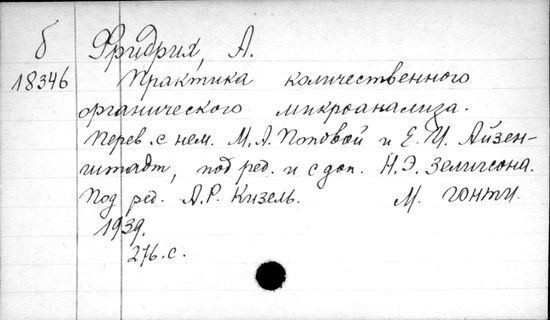 б Фридрих, А.
18346 Практика количественного
органического микроанализа.
Перев. с нем. М.А. Поповой и Е.И. Айзен-
штадт, под ред. и с доп. Н.Э. Зелигсона.
Под ред. А.Р. Кизель. М. ГОНТИ.
1939.
276. с.